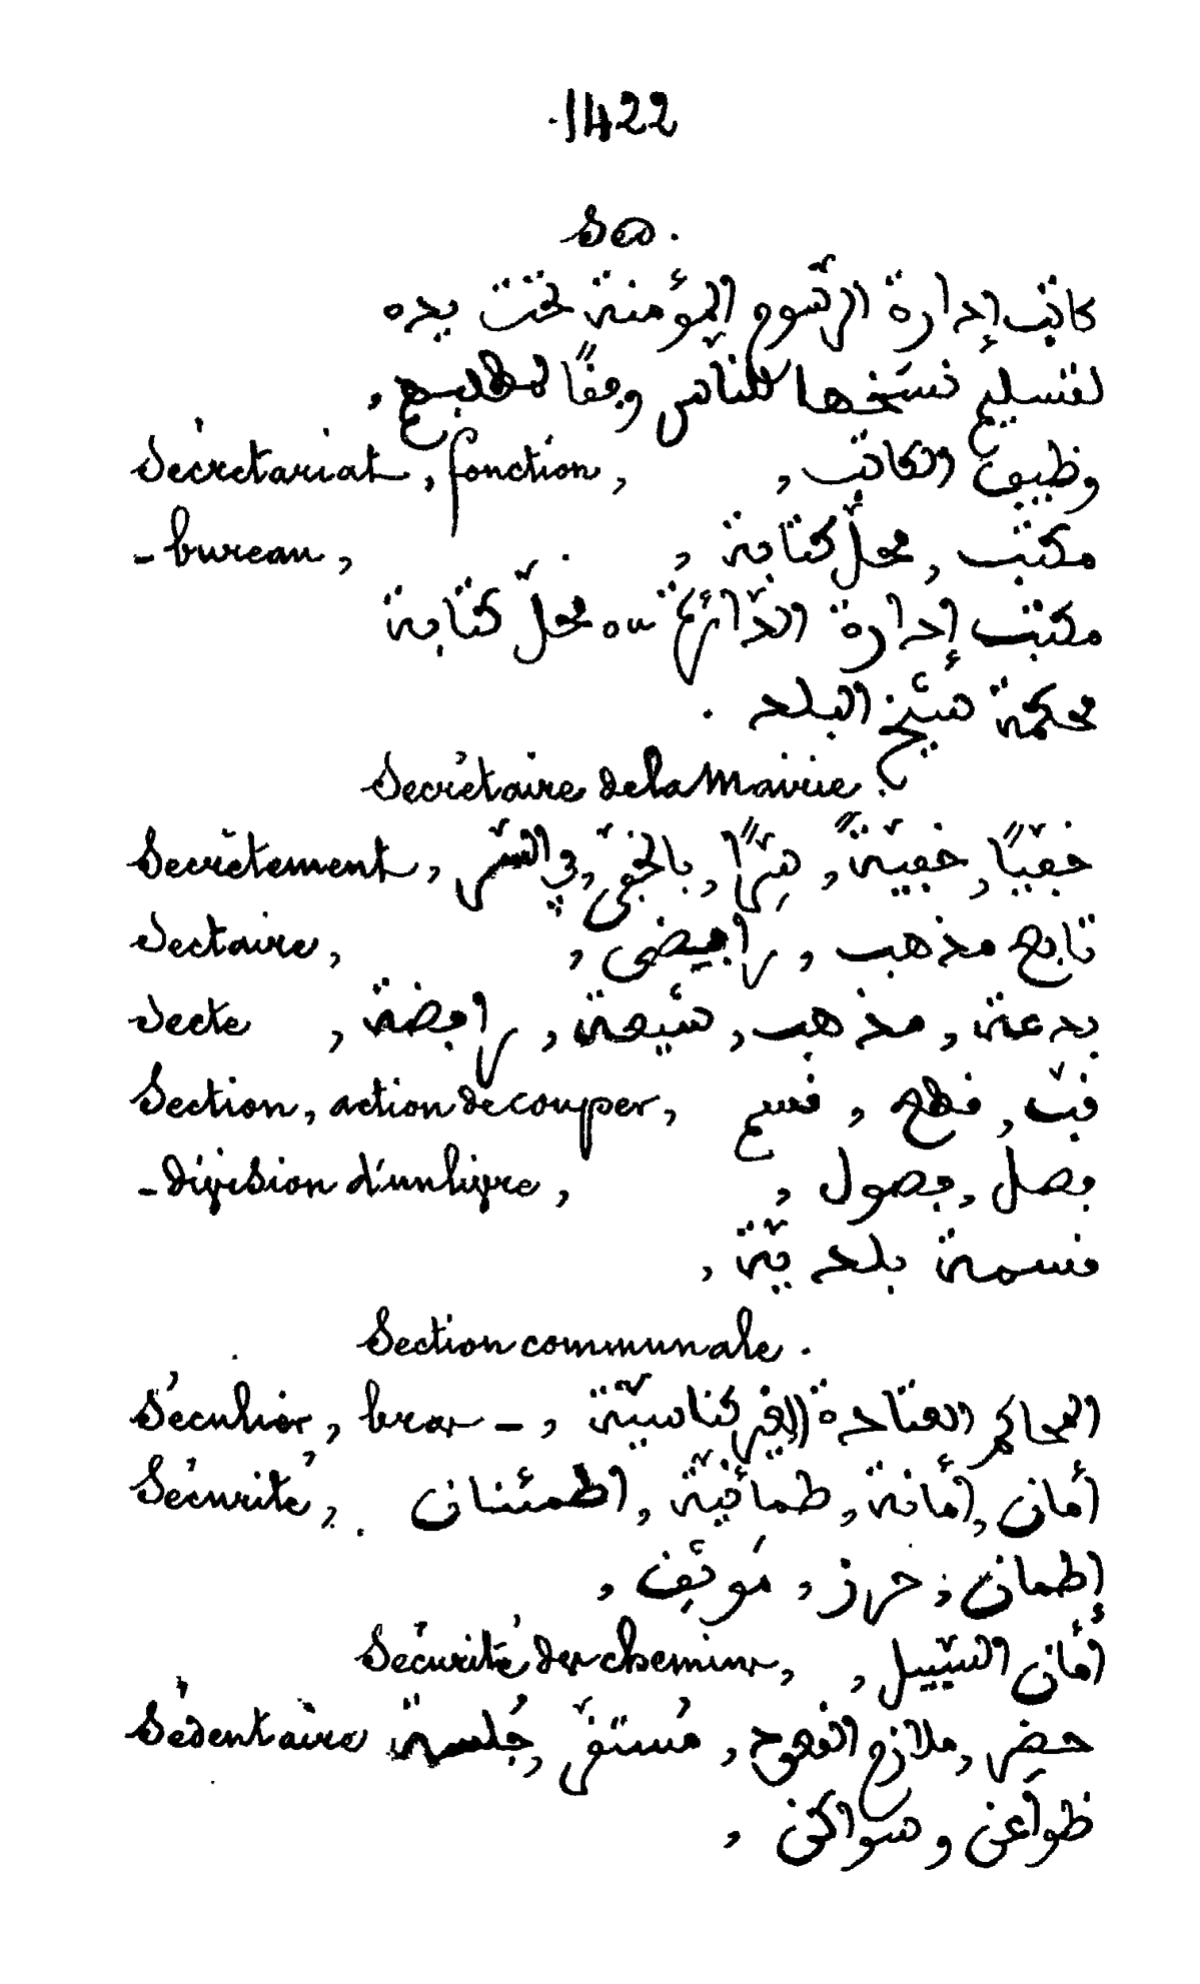 1422
Se.
كاتب إدارة الرّسوم المؤمنة تحت يده
لتسليم نسَخها للنّاس وفقًا لمطلبهم,
Secrétariat, fonction, وظيفة الكاتب,
- bureau, مكتب, محلّ كتابة,
مكتب إدارة الدّائرة ou محلّ كتابة
محكمة شيْخ البلد.
Secrétaire de la Mairie.
Secrètement, خفيًّا, خفيّةً, سِرًّا, بالخفى, في السّر
Sectaire, تابع مذهب, رافيضى,
Secte بدعة, مذهب, شيعة, رافضة,
Section, action de couper, قبّ, قطع, قسم
- division d'un livre, فصل, فصول,
قسمة بلديّة,
Section communale.
Séculier, bras -, المحاكم العتادة الغير كناسيّة,
Sécurité, أمان, أمانة, طمأنيّة, اطمئنان
إطمان, حرز, مَوثِق,
Sécurité des chemins, أمان السّبيل,
Sédentaire حضر, ملازم القعود, مُستقرّ, جُلسة
ظواعن وسواكن,